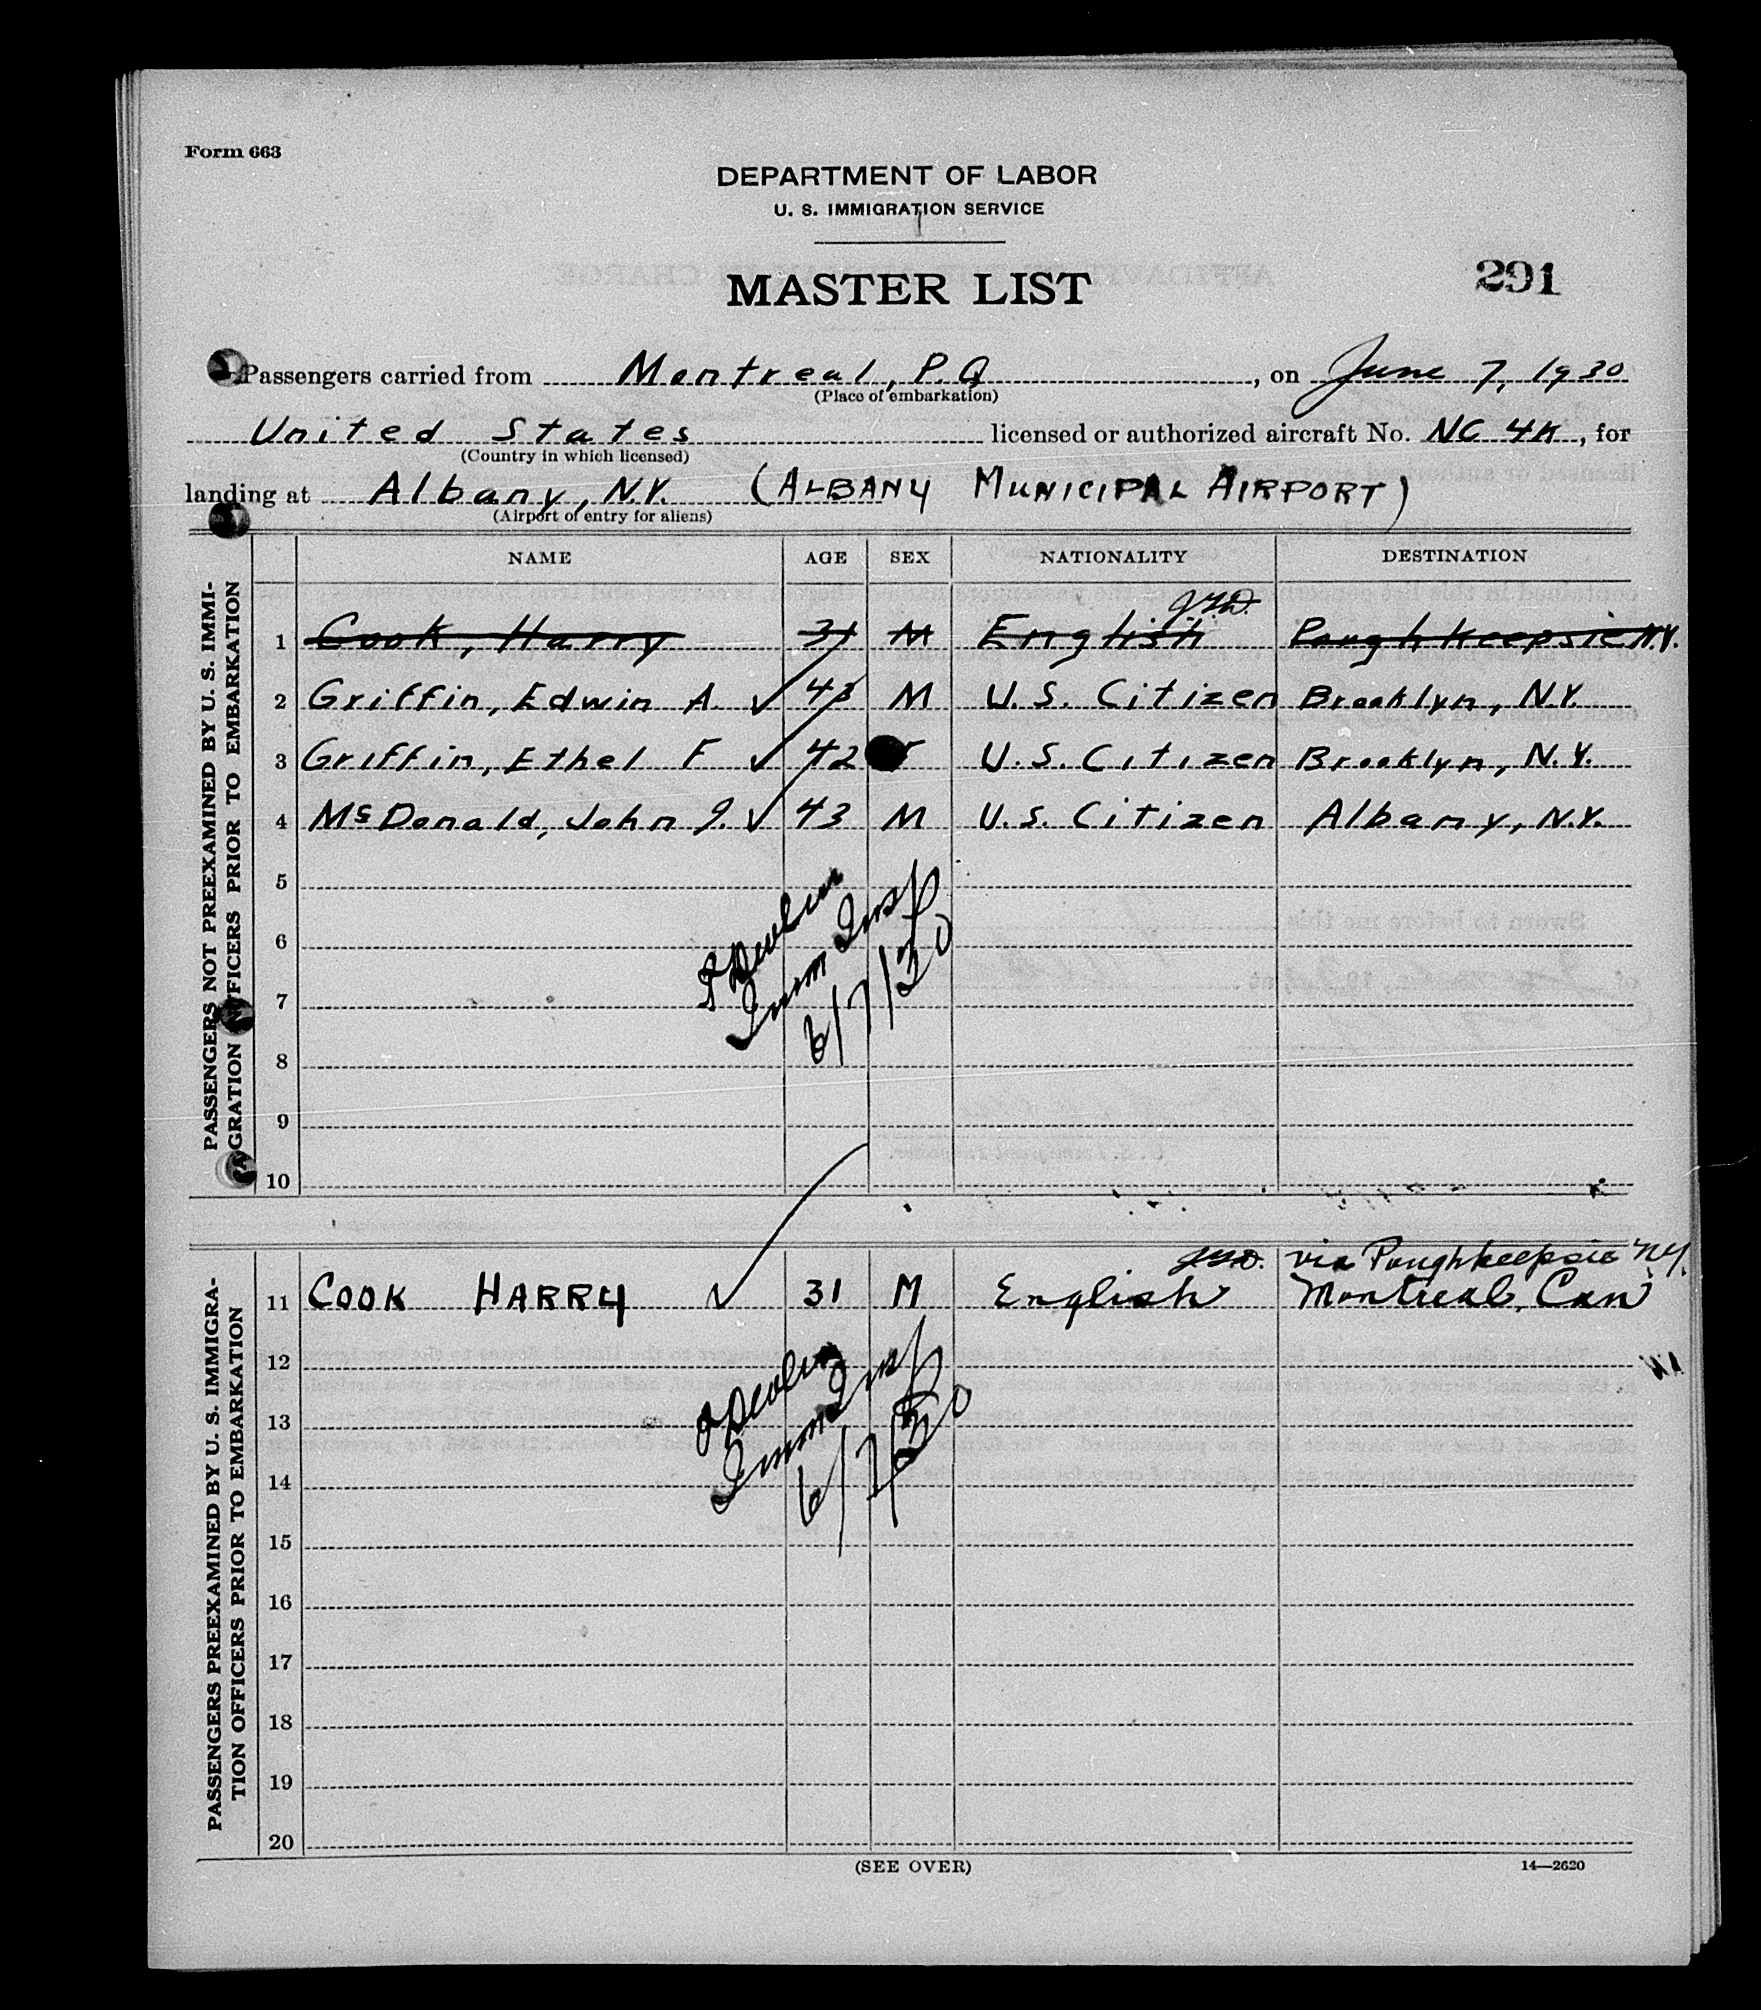 Form 663
DEPARTMENT OF LABOR
U. S. IMMIGRATION SERVICE
MASTER LIST
291
Passengers carried from Montreal, P.Q. , on June 7, 1930
(Place of embarkation)
United States licensed or authorized aircraft No. NC 4K, for
(Country in which licensed)
landing at Albany, N.Y. (ALBANY MUNICIPAL AIRPORT)
(Airport of entry for aliens)
PASSENGERS NOT PREEXAMINED BY U. S. IMMI-
GRATION OFFICERS PRIOR TO EMBARKATION
NAME AGE SEX NATIONALITY DESTINATION
1 Cook, Harry 31 M English Poughkeepsie N.Y.
2 Griffin, Edwin A. ✓ 43 M U.S. Citizen Brooklyn, N.Y.
3 Griffin, Ethel F ✓ 42 U.S. Citizen Brooklyn, N.Y.
4 McDonald, John J. ✓ 43 M U.S. Citizen Albany, N.Y.
5
6
7
8
9
10
Devlin
Imm Insp
6/7/30
PASSENGERS PREEXAMINED BY U. S. IMMIGRA-
TION OFFICERS PRIOR TO EMBARKATION
via Poughkeepsie N.Y.
11 COOK HARRY ✓ 31 M English Montreal, Can
12
13
14
15
16
17
18
19
20
Devlin
Imm Insp
6/7/30
(SEE OVER)
14—2620